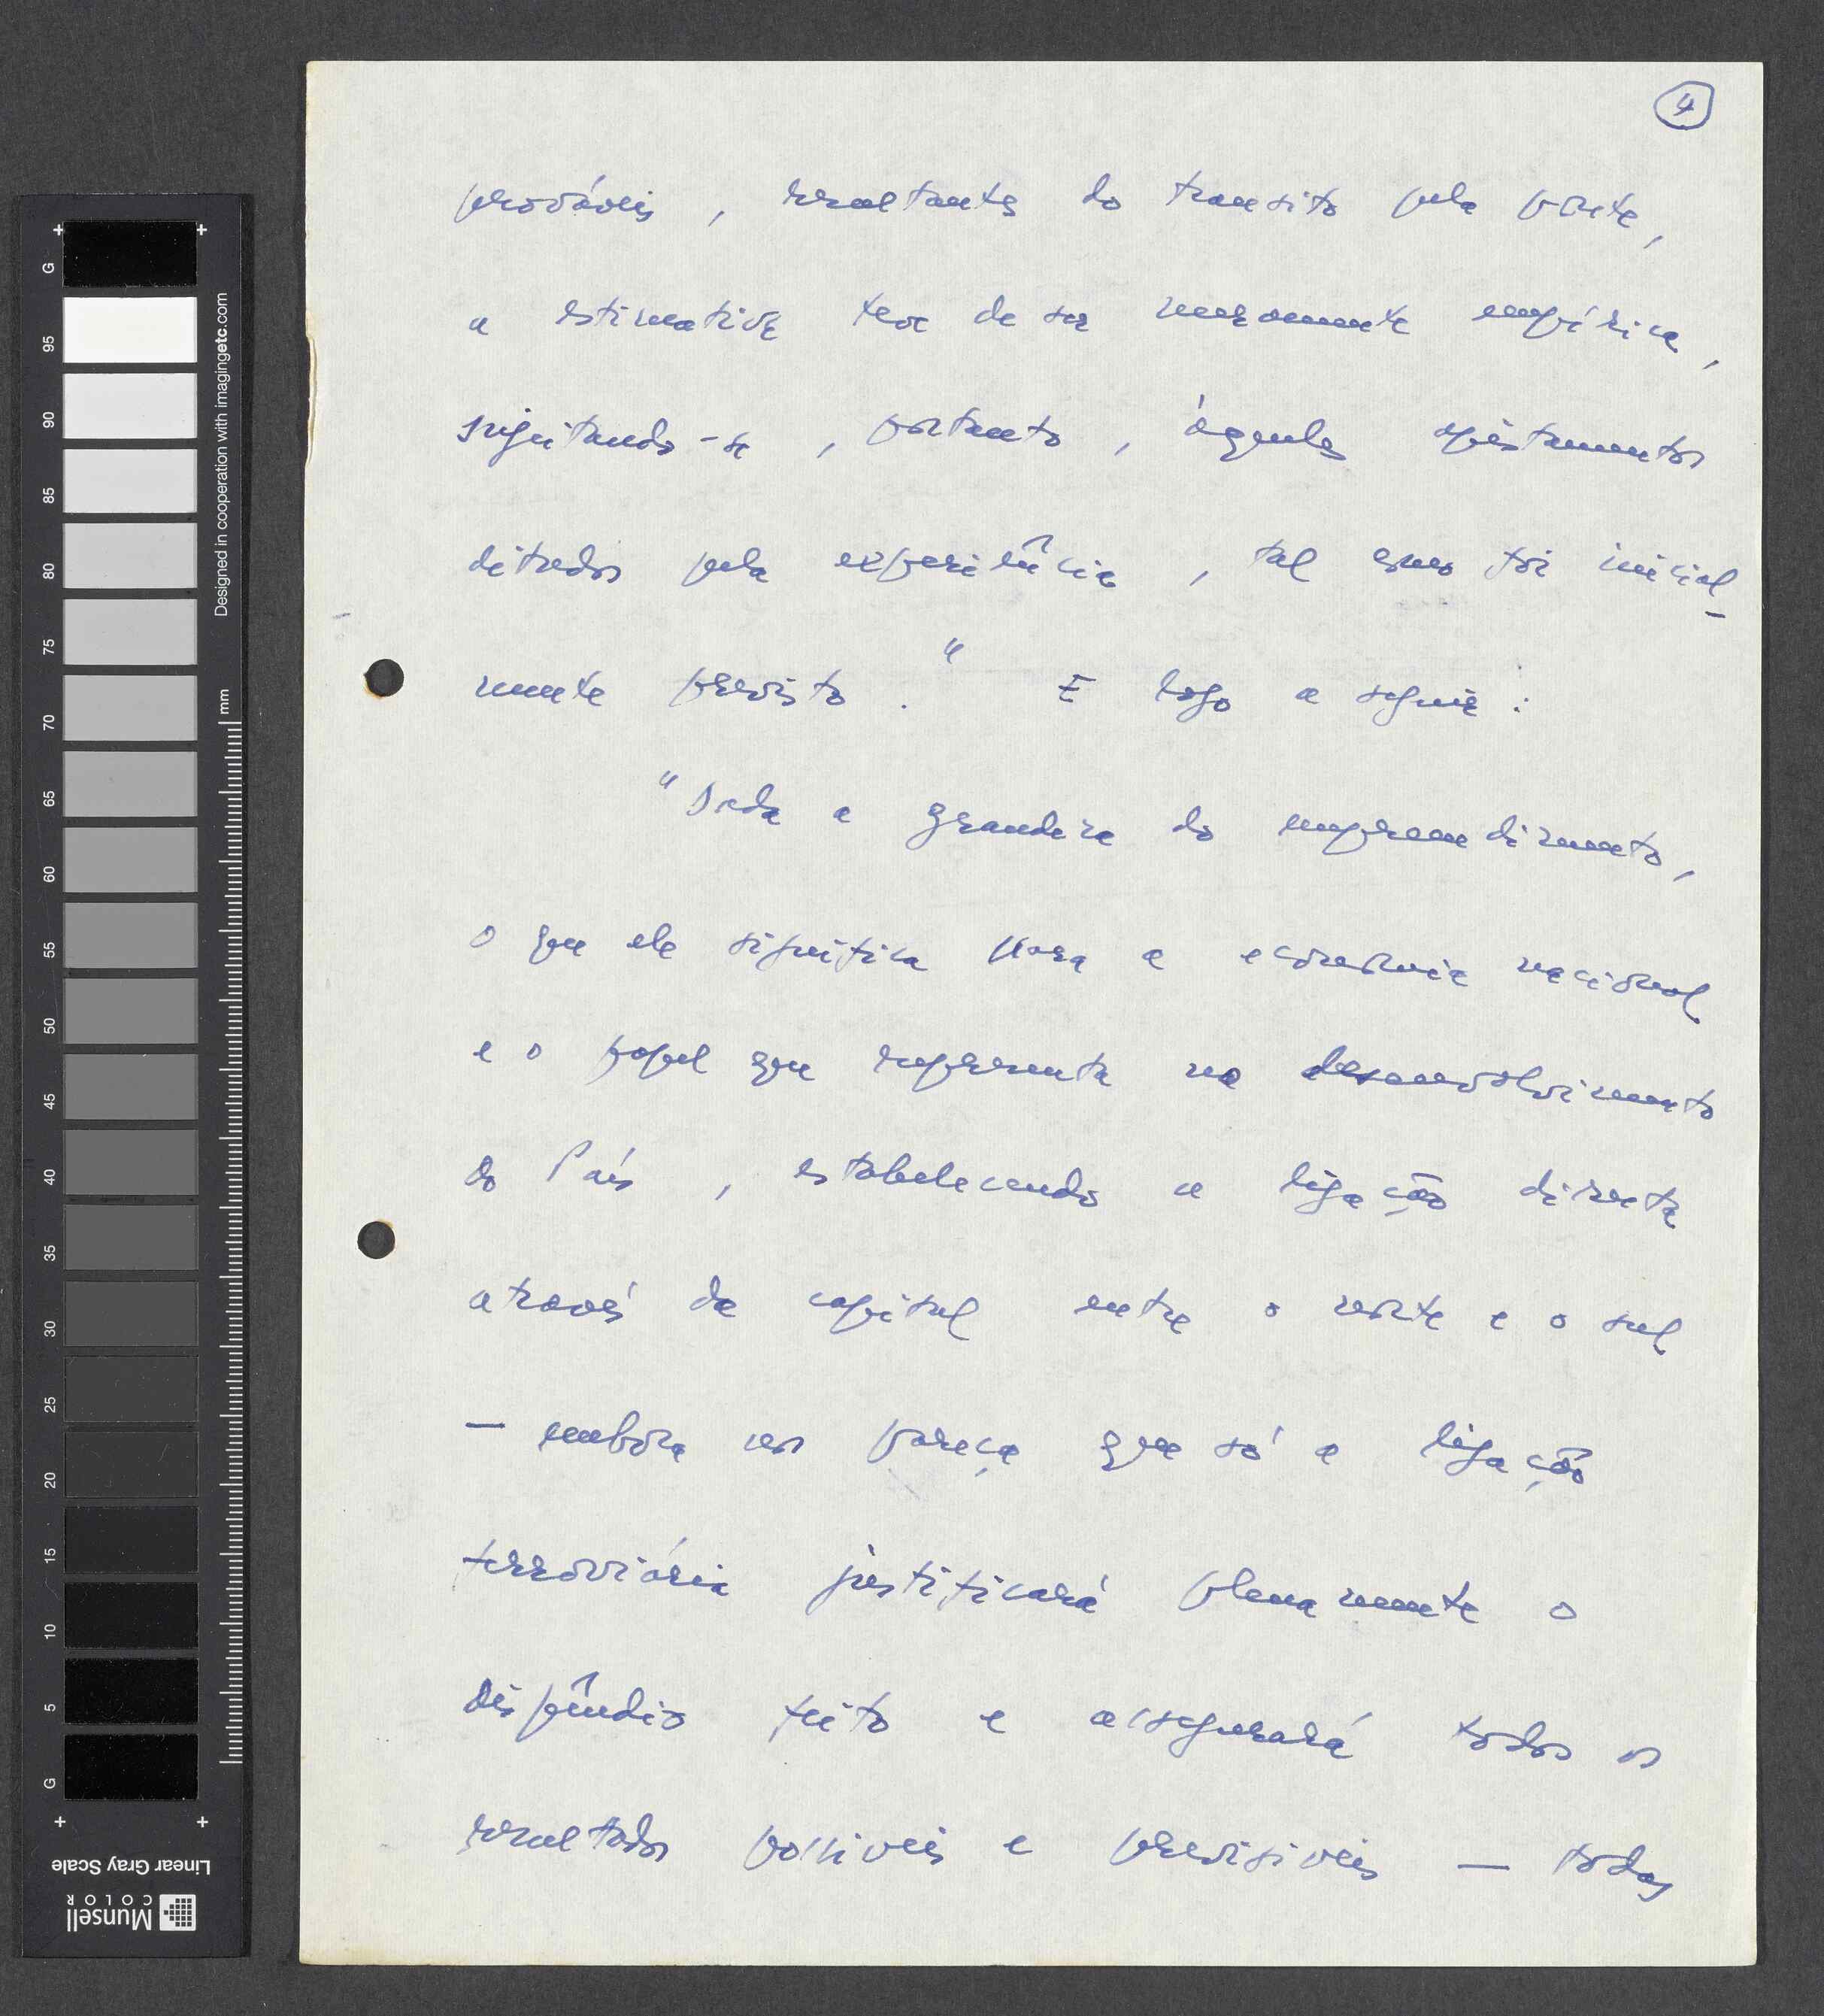 4
prováveis, resultantes do transito pela ponte,
a estimativa teve de ser meramente empírica,
sujeitando-se, portanto, àqueles ajustamentos
ditados pela experiência, tal como foi inicial-
mente previsto." E logo a seguir:
"Dada a grandeza do empreendimento,
o que ele significa para a economia nacional
e o papel que representa no desenvolvimento
do País, estabelecendo a ligação directa
através da capital entre o norte e o sul
— embora nos pareça que só a ligação
ferroviária justificará plenamente o
dispêndio feito e assegurará todos os
resultados possiveis e previsiveis — todas
G
95
90
85
80
75
70
65
60
55
50
45
40
35
30
25
20
15
10
5
G
mm
Designed in cooperation with imagingetc.com
Linear Gray Scale
Munsell
COLOR